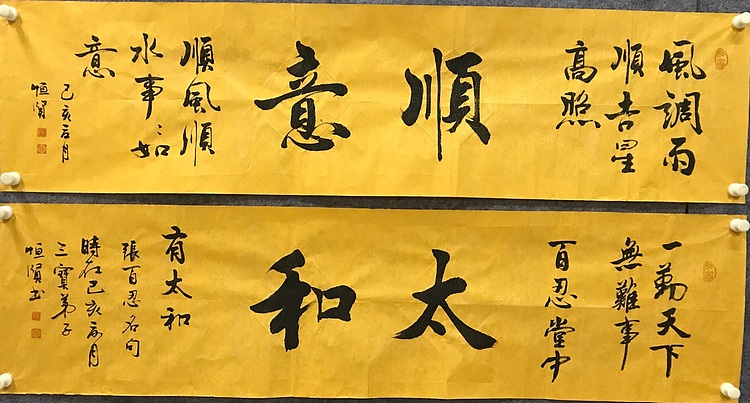 風調雨
順吉星
高照
順意
順風順
水事〻如
意
己亥五月
恒賢
一勤天下
無難事
百忍堂中
太和
有太和
張百忍名句
時在己亥五月
三寶弟子
恒賢书